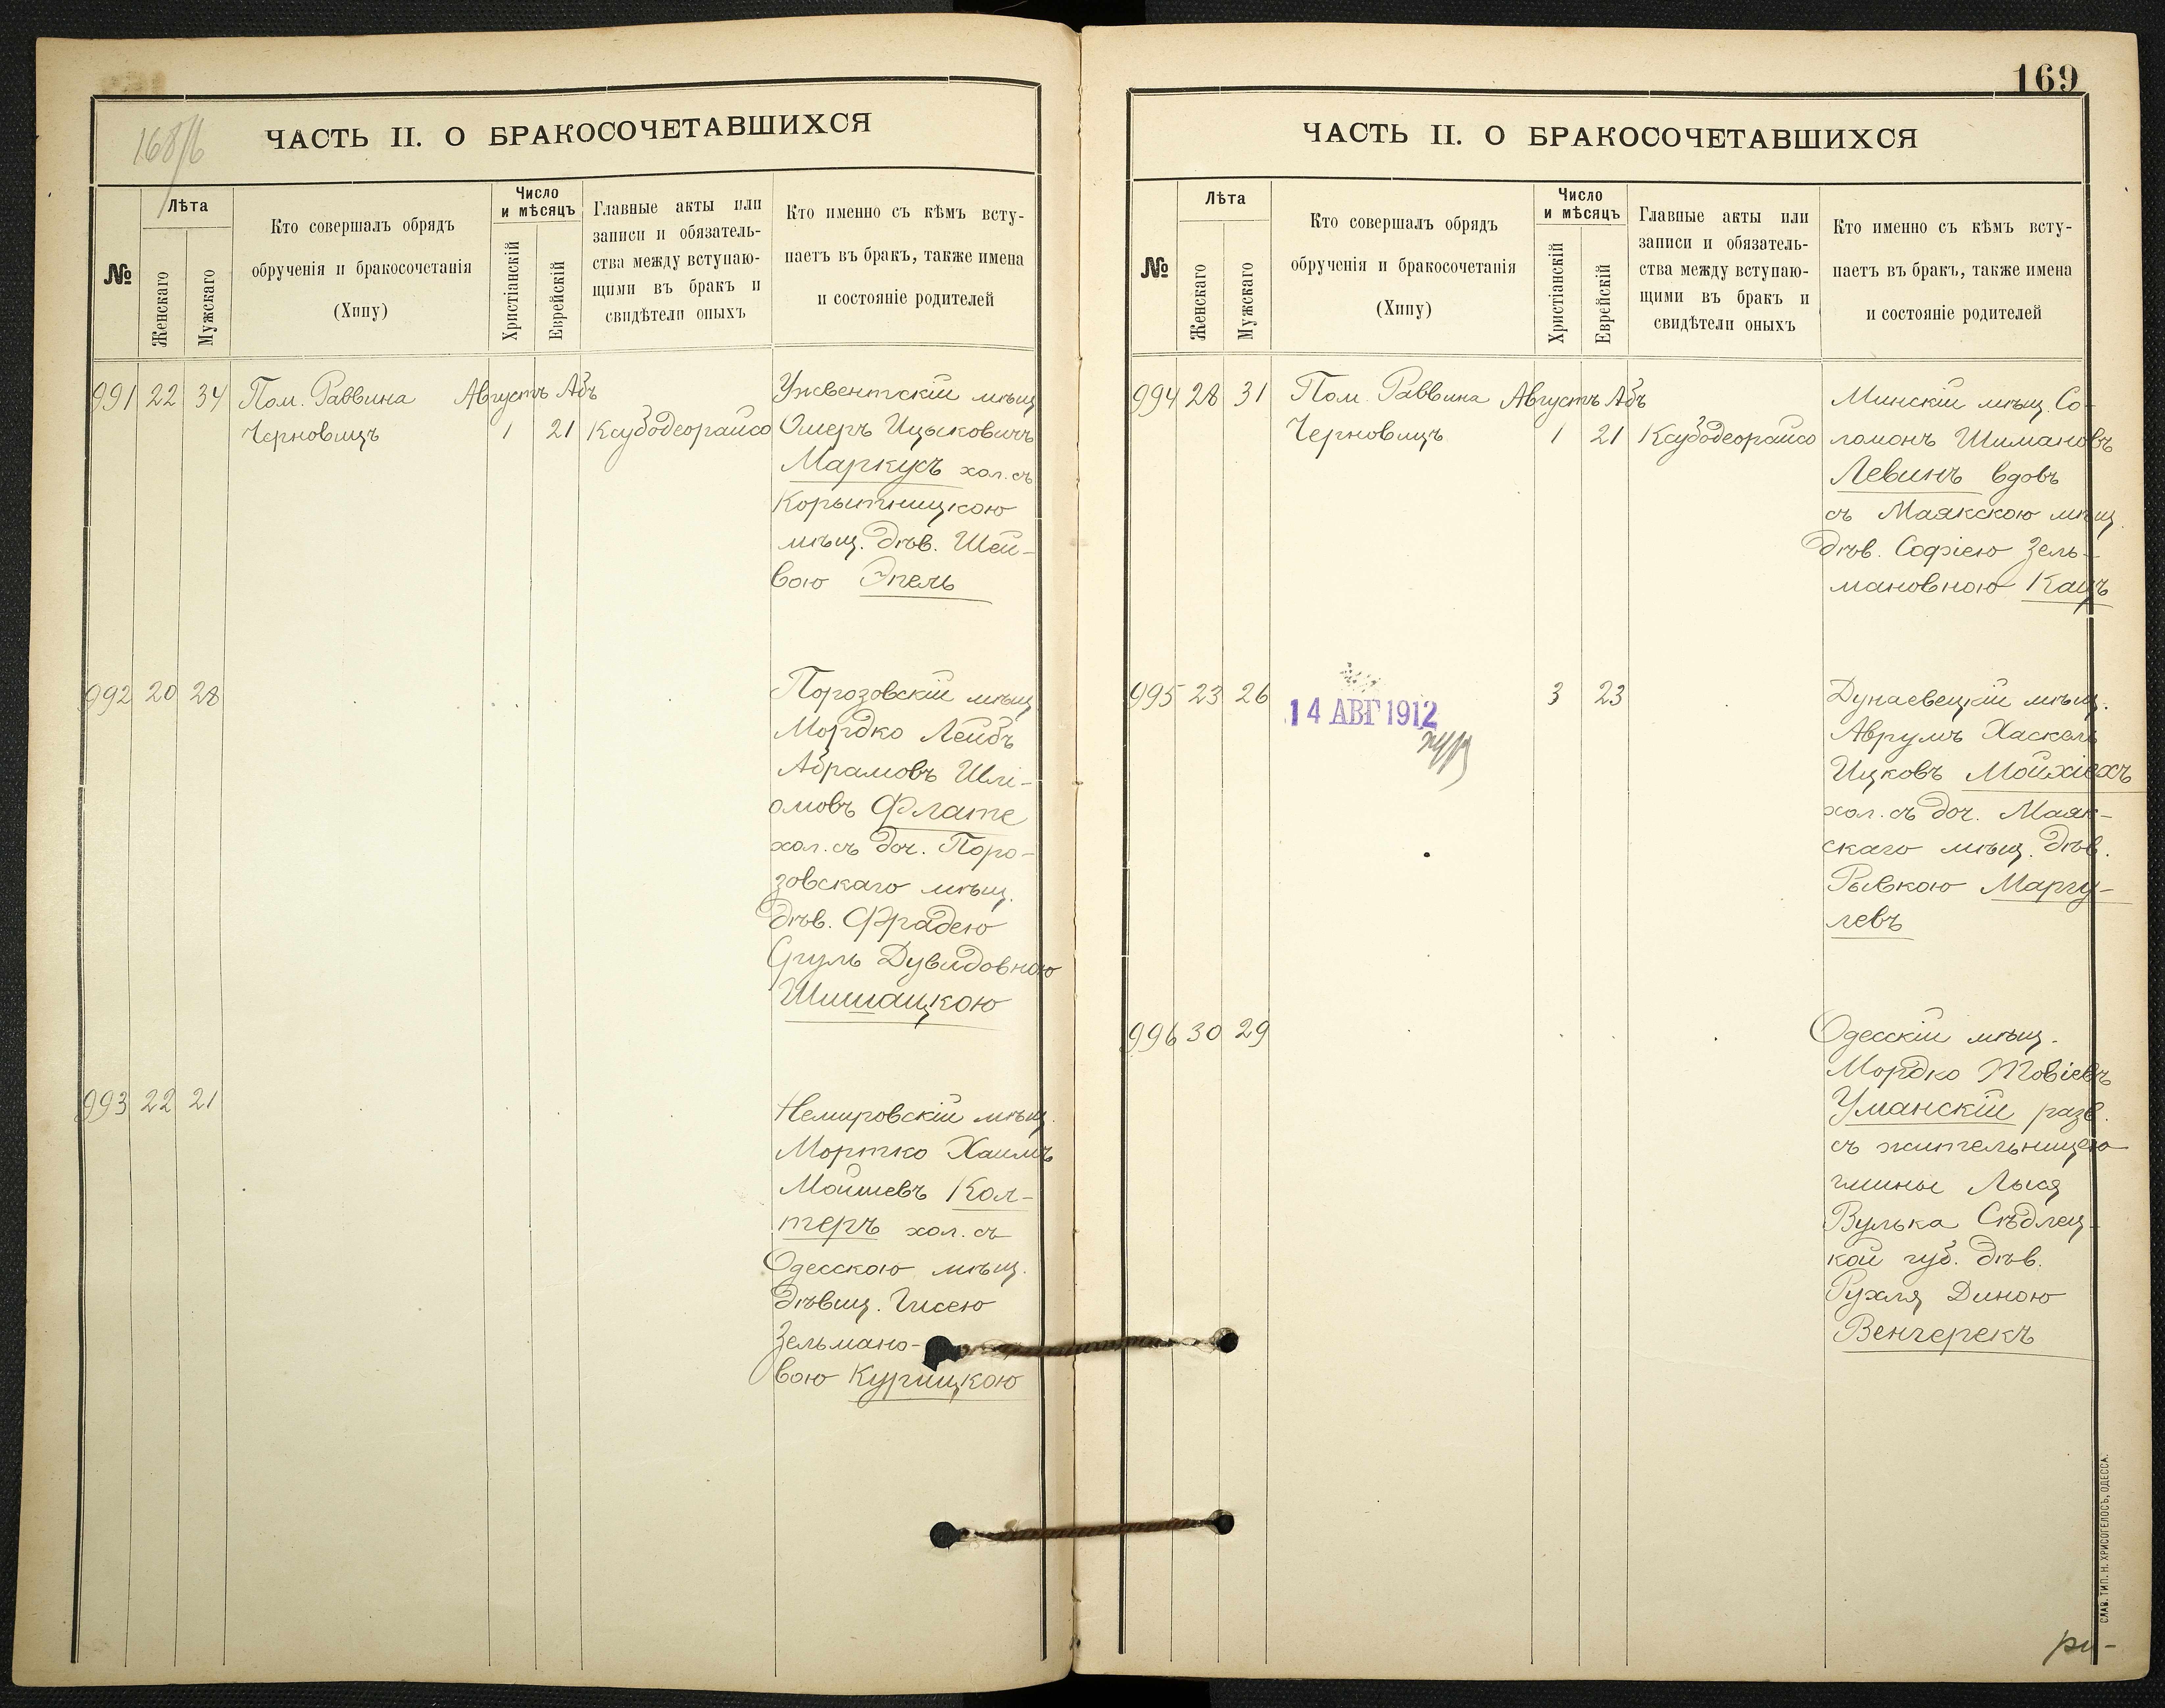 168/б
ЧАСТЬ II. О БРАКОСОЧЕТАВШИХСЯ
№
Лѣта
Женскаго
Мужскаго
Кто совершалъ обрядъ
обрученія и бракосочетанія
(Хипу)
Число
и мѣсяцъ
Христіанскій
Еврейскій
Главные акты или
записи и обязатель-
ства между вступаю-
щими въ бракъ и
свидѣтели оныхъ
Кто именно съ кѣмъ всту-
паетъ въ бракъ, также имена
и состояніе родителей
991 22 34 Пом. Раввина Августъ Абъ
Черновицъ 1 21 Ксубодеорайсо
Ужвентскій мѣщ
Омеръ Ицыковичъ
Маркусъ хол. съ
Корытницкою
мѣщ. дѣв. Шей-
вою Эпель
992 20 28
Порозовскій мѣщ
Мордко Лейбъ
Абрамовъ Шлі-
омовъ Флате
хол. съ доч. Поро-
зовскаго мѣщ.
дѣв. Фрадею
Сруль Дувидовною
Шишацкою
993 22 21
Немировскій мѣщ.
Мортко Хаимъ
Мойшевъ Кол-
теръ хол. съ
Одесскою мѣщ.
дѣвиц. Гисею
Зельмано-
вою Курицкою
169
ЧАСТЬ II. О БРАКОСОЧЕТАВШИХСЯ
№
Лѣта
Женскаго
Мужскаго
Кто совершалъ обрядъ
обрученія и бракосочетанія
(Хипу)
Число
и мѣсяцъ
Христіанскій
Еврейскій
Главные акты или
записи и обязатель-
ства между вступаю-
щими въ бракъ и
свидѣтели оныхъ
Кто именно съ кѣмъ всту-
паетъ въ бракъ, также имена
и состояніе родителей
994 28 31 Пом. Раввина Августъ Абъ
Черновицъ 1 21 Ксубодеорайсо
Минскій мѣщ. Со-
ломонъ Шимановъ
Левинъ вдовъ
съ Маякскою мѣщ.
дѣв. Софіею Зель-
мановною Кацъ
995 23 26 3 23
14 АВГ 1912
Дунаевецкій мѣщ.
Аврумъ Хаскель
Ицковъ Мойхіехъ
хол. съ доч. Маяк-
скаго мѣщ. дѣв.
Рывкою Маргу-
левъ
996 30 29
Одесскій мѣщ.
Мордко Товіевъ
Уманскій разв.
съ жительницею
гмины Лысая
Вулька Сѣдлец-
кой губ. дѣв.
Рухля Диною
Венгерекъ
СЛАВ. ТИП. Н. ХРИСОГЕЛОСЪ, ОДЕССА.